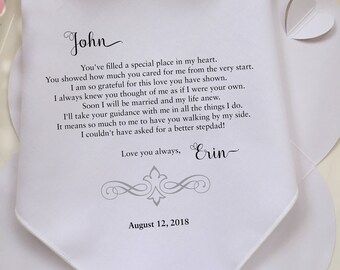 John
You've filled a special place in my heart.
You showed how much you cared for me from the very start.
I am so grateful for this love you have shown.
I always knew you thought of me as if I were your own.
Soon I will be married and my life anew.
I'll take your guidance with me in all the things I do.
It means so much to me to have you walking by my side.
I couldn't have asked for a better stepdad!
Love you always, Erin
August 12, 2018